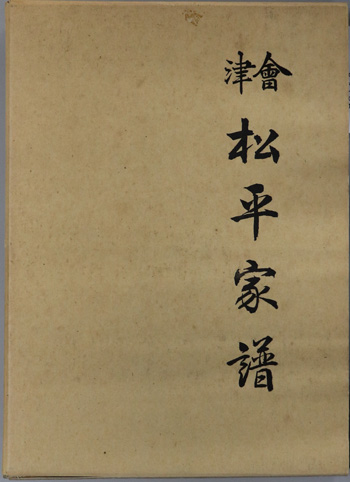 會津
松平家譜